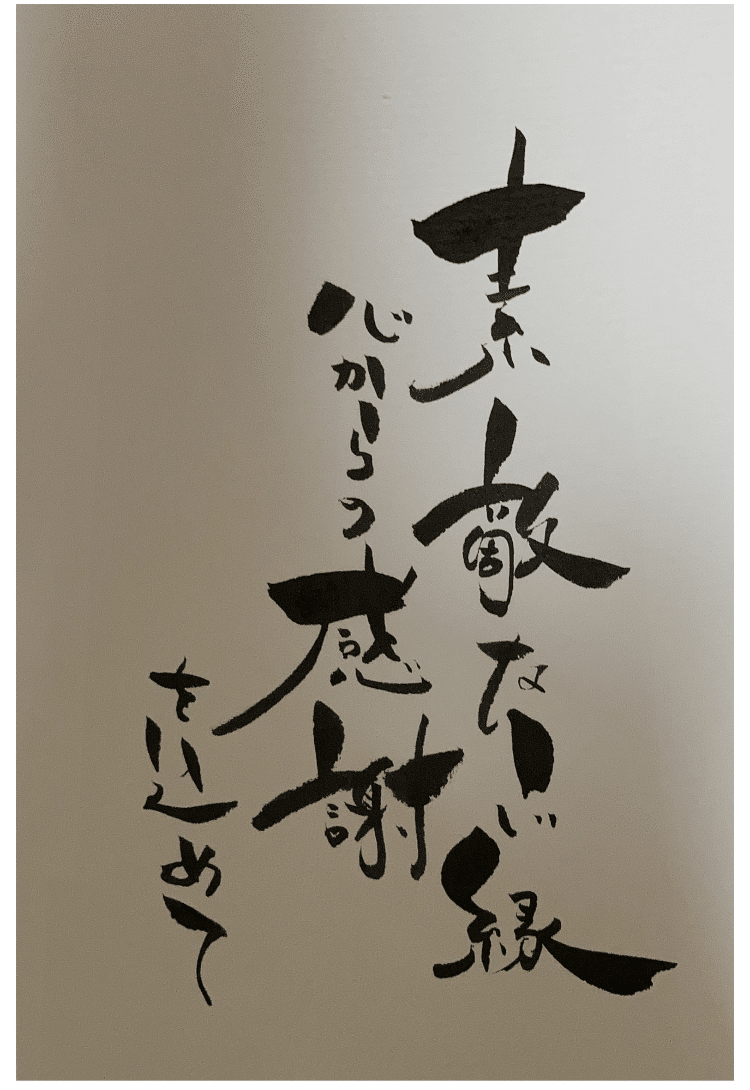 素敵なご縁
心からの感謝
を込めて